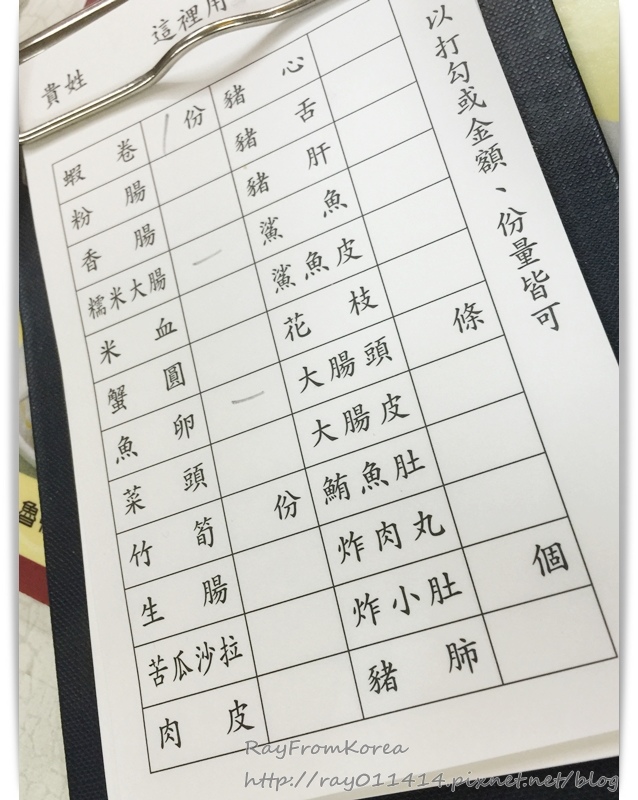 這裡用
貴姓
以打勾或金額、份量皆可
蝦卷 / 份 豬心
粉腸 豬舌
香腸 豬肝
糯米大腸 一 鯊魚
米血 鯊魚皮
蟹圓 花枝
魚卵 一 大腸頭 條
菜頭 大腸皮
竹筍 份 鮪魚肚
生腸 炸肉丸
苦瓜沙拉 炸小肚 個
肉皮 豬肺
RayFromKorea
http://ray011414.pixnet.net/blog